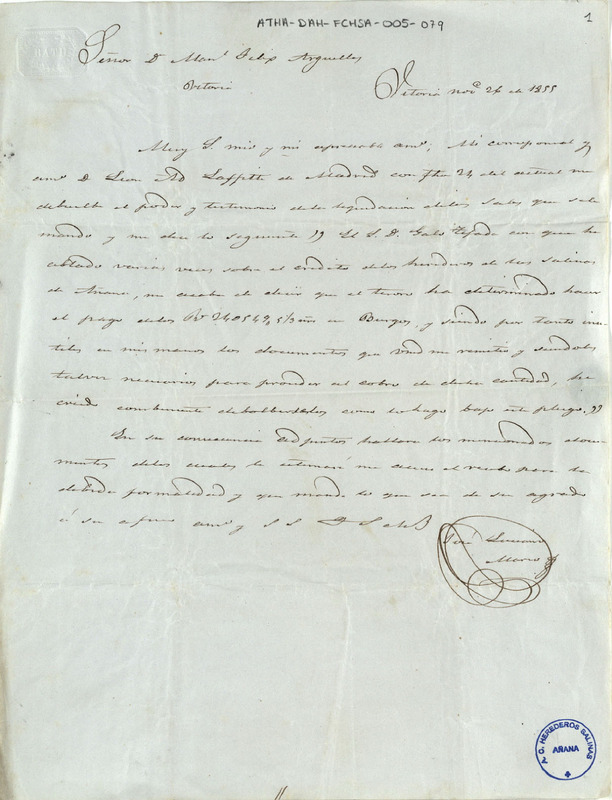 ATHA-DAH-FCHSA-005-079
1
Señor Dn Manl Felix Arguelles
Vitoria
Vitoria Nove 26 de 1855
Muy S. mio y mi apreciable amo. Mi corresponsal y
amo D. Leon Ad Laffitte de Madrid con fha 24 del actual me
debuelbe el poder y testimonio de la liquidacion de las sales que se le
mando y me dice lo siguiente " El S. D. Galo Tejada con quien he
estado varias veces sobre el credito de los herederos de las salinas
de Añana, me acaba de decir que el tesoro ha determinado hacer
el pago de los Rs 240549, en Burgos, y siendo por tanto inu-
tiles en mis manos los documentos que Vmd me remitio y siendole
talvez necesarios para proceder al cobro de dicha cantidad, he
creido combeniente debolberselos como lo hago bajo este pliego. "
En su consecuencia adjuntos hallara los mencionados docu-
mentos de los cuales le estimaré me acuse el recibo para la
debida formalidad y que mande lo que sea de su agrado
á su afmo amo y S. S. Q S M B
José
Marco
P. G. HEREDEROS SALINAS
AÑANA